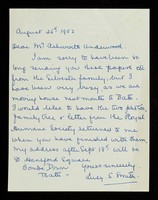 August 25th 1952
Dear Mr Ashworth Underwood
I am sorry to have been so
long sending you these papers etc
from the Silvester family, but I
have been very busy as we are
moving house next month to Bath.
I would like to have the two photos,
family tree & letter from the Royal
Humane Society returned to me
when you have finished with them.
My address after Sept 18th will be
Hensford Square
Combe Down
Bath -
Yours sincerely
Lucy E.